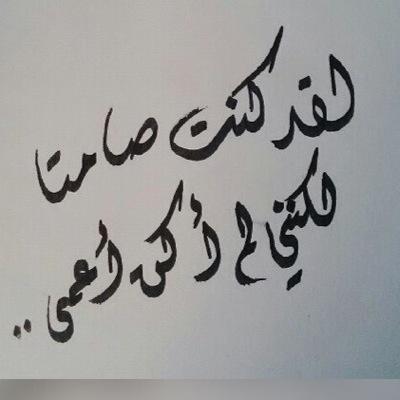 لقد كنت صامتا
لكنني لم أكن أعمى ..